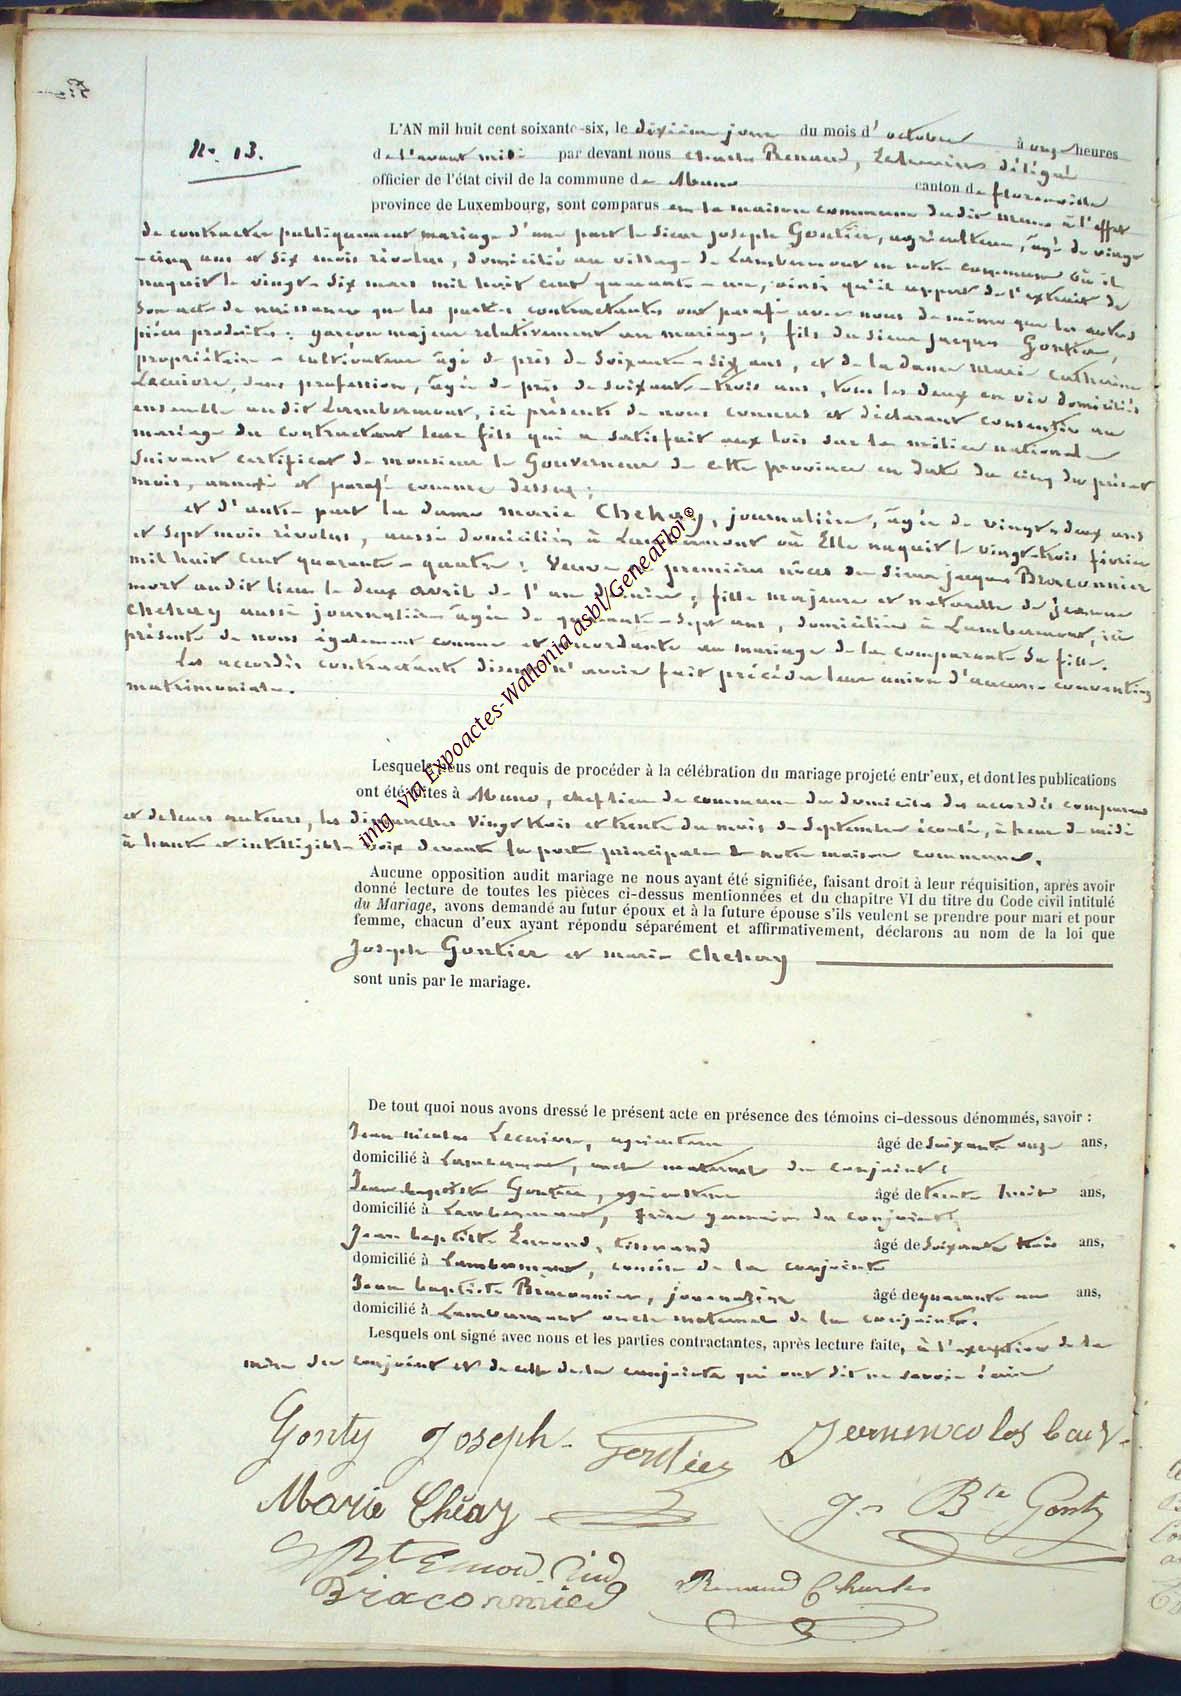 N° 13.
L'AN mil huit cent soixante-six, le dixième jour du mois d'octobre à onze heures
de l'avant midi par devant nous Charles Renaud, Echevin délégué
officier de l'état civil de la commune de Muno canton de florenville
province de Luxembourg, sont comparus en la maison commune dudit Muno à l'effet
de contracter publiquement mariage d'une part le sieur Joseph Gontier, agriculteur, âgé de vingt
-cinq ans et six mois révolus, domicilié au village de Lambermont en notre commune où il
naquit le vingt-six mars mil huit cent quarante-un, ainsi qu'il appert de l'extrait de
son acte de naissance que les parties contractantes ont parafé avec nous de même que les autres
pièces produites: garçon majeur relativement au mariage; fils du sieur jacques Gontier,
propriétaire-cultivateur âgé de près de soixante-six ans, et de la dame Marie Catherine
Lecuivre, sans profession, âgée de près de soixante-trois ans, tous les deux en vie domiciliés
ensemble audit Lambermont, ici présents de nous connus et déclarant consentir au
mariage du contractant leur fils qui a satisfait aux lois sur la milice nationale
suivant certificat de monsieur le Gouverneur de cette province en date du cinq du présent
mois, annexé et parafé comme dessus;
et d'autre part la dame marie Chehay, journalière, âgée de vingt-deux ans
et sept mois révolus, aussi domiciliée à Lambermont où Elle naquit le vingt-trois février
mil huit cent quarante-quatre: Veuve en premières nôces du sieur jacques Braconnier
mort audit lieu le deux avril de l'an dernier; fille majeure et naturelle de jeanne
Chehay aussi journalière âgée de quarante-sept ans, domiciliée à Lambermont, ici
présente de nous également connue et accordante au mariage de la comparante sa fille.
Les accordés contractants disent n'avoir fait précéder leur union d'aucune convention
matrimoniale.
Lesquels nous ont requis de procéder à la célébration du mariage projeté entr'eux, et dont les publications
ont été faites à Muno, chef lieu de commune du domicile des accordés comparans
et de leurs auteurs, les dimanches vingt trois et trente du mois de Septembre écoulé, à heure de midi
à haute et intelligible voix devant la porte principale de notre maison commune.
Aucune opposition audit mariage ne nous ayant été signifiée, faisant droit à leur réquisition, après avoir
donné lecture de toutes les pièces ci-dessus mentionnées et du chapitre VI du titre du Code civil intitulé
du Mariage, avons demandé au futur époux et à la future épouse s'ils veulent se prendre pour mari et pour
femme, chacun d'eux ayant répondu séparément et affirmativement, déclarons au nom de la loi que
Joseph Gontier et marie Chehay
sont unis par le mariage.
De tout quoi nous avons dressé le présent acte en présence des témoins ci-dessous dénommés, savoir :
Jean nicolas Lecuivre, agriculteur âgé de Soixante onze ans,
domicilié à Lambermont, oncle maternel du conjoint;
Jean baptiste Gontier, agriculteur âgé de trente huit ans,
domicilié à Lambermont, frère germain du conjoint;
Jean baptiste Emond, tisserand âgé de Soixante trois ans,
domicilié à Lambermont, cousin de la conjointe
Jean baptiste Braconnier, journalier âgé de quarante un ans,
domicilié à Lambermont oncle maternel de la conjointe.
Lesquels ont signé avec nous et les parties contractantes, après lecture faite, à l'exception de la
mère du conjoint et de celle de la conjointe qui ont dit ne savoir écrire
Gonty Joseph Gontier Jean nicolas
Marie Chéay J. Bte Gonty
J Bt Emond
Braconnier Renaud Charles
img via Expoactes-Wallonia asbl/GeneaFloi©